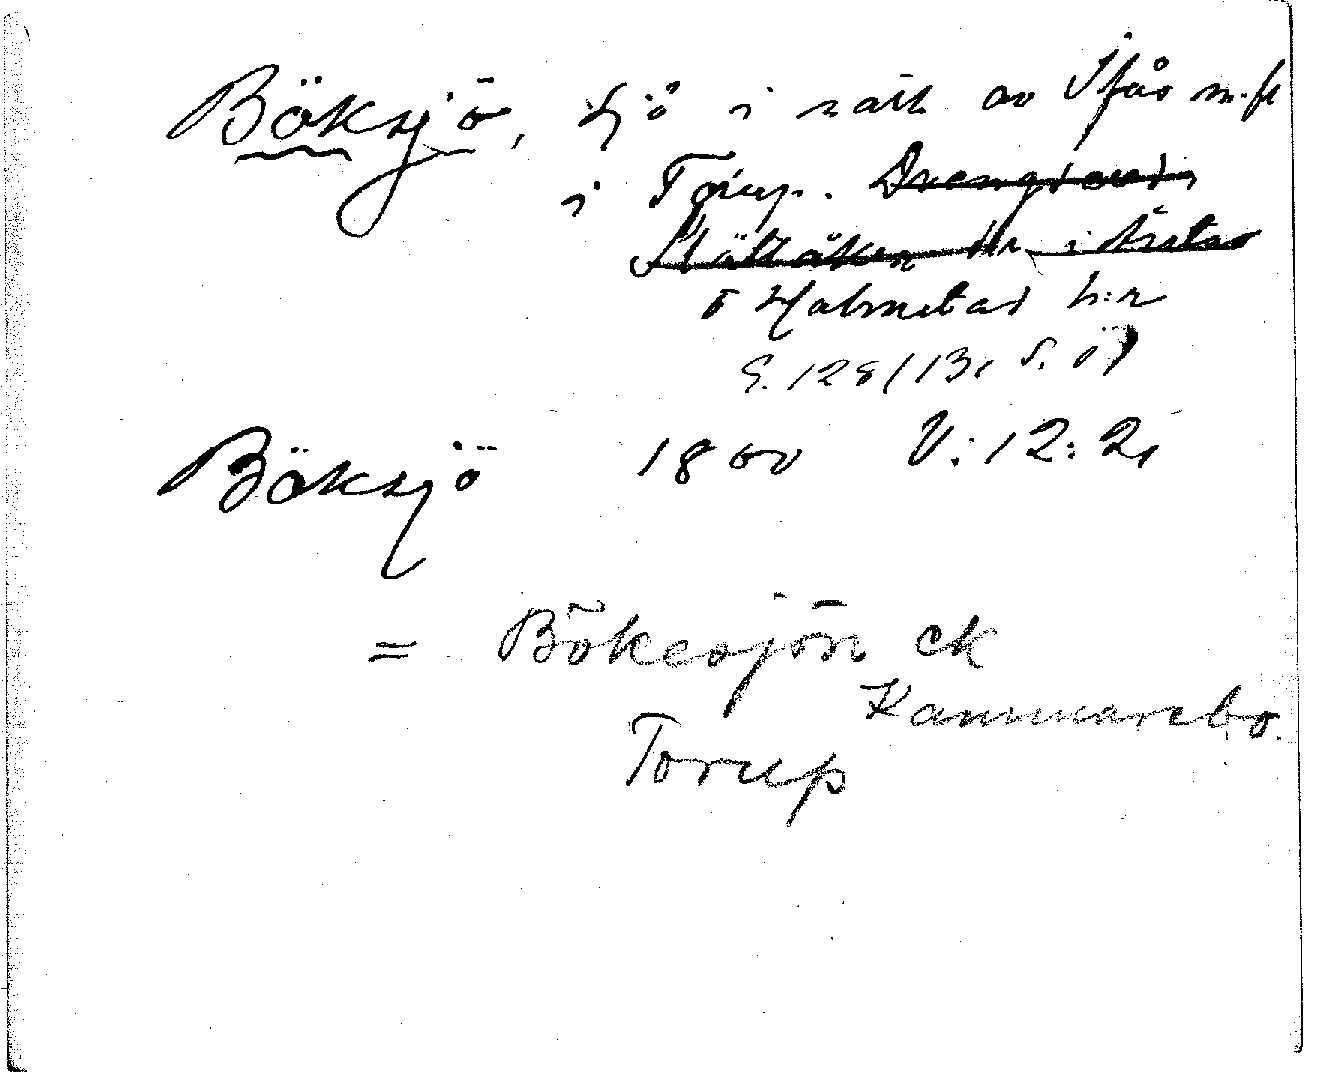 Böksjö, sjö i nätt av Ifås m.fl
i Torup.
o Halmstad h:r
S. 128/13,
Böksjö 1800 V:12:2,
= Bökesjön ek
Kammarsbo.
Torup